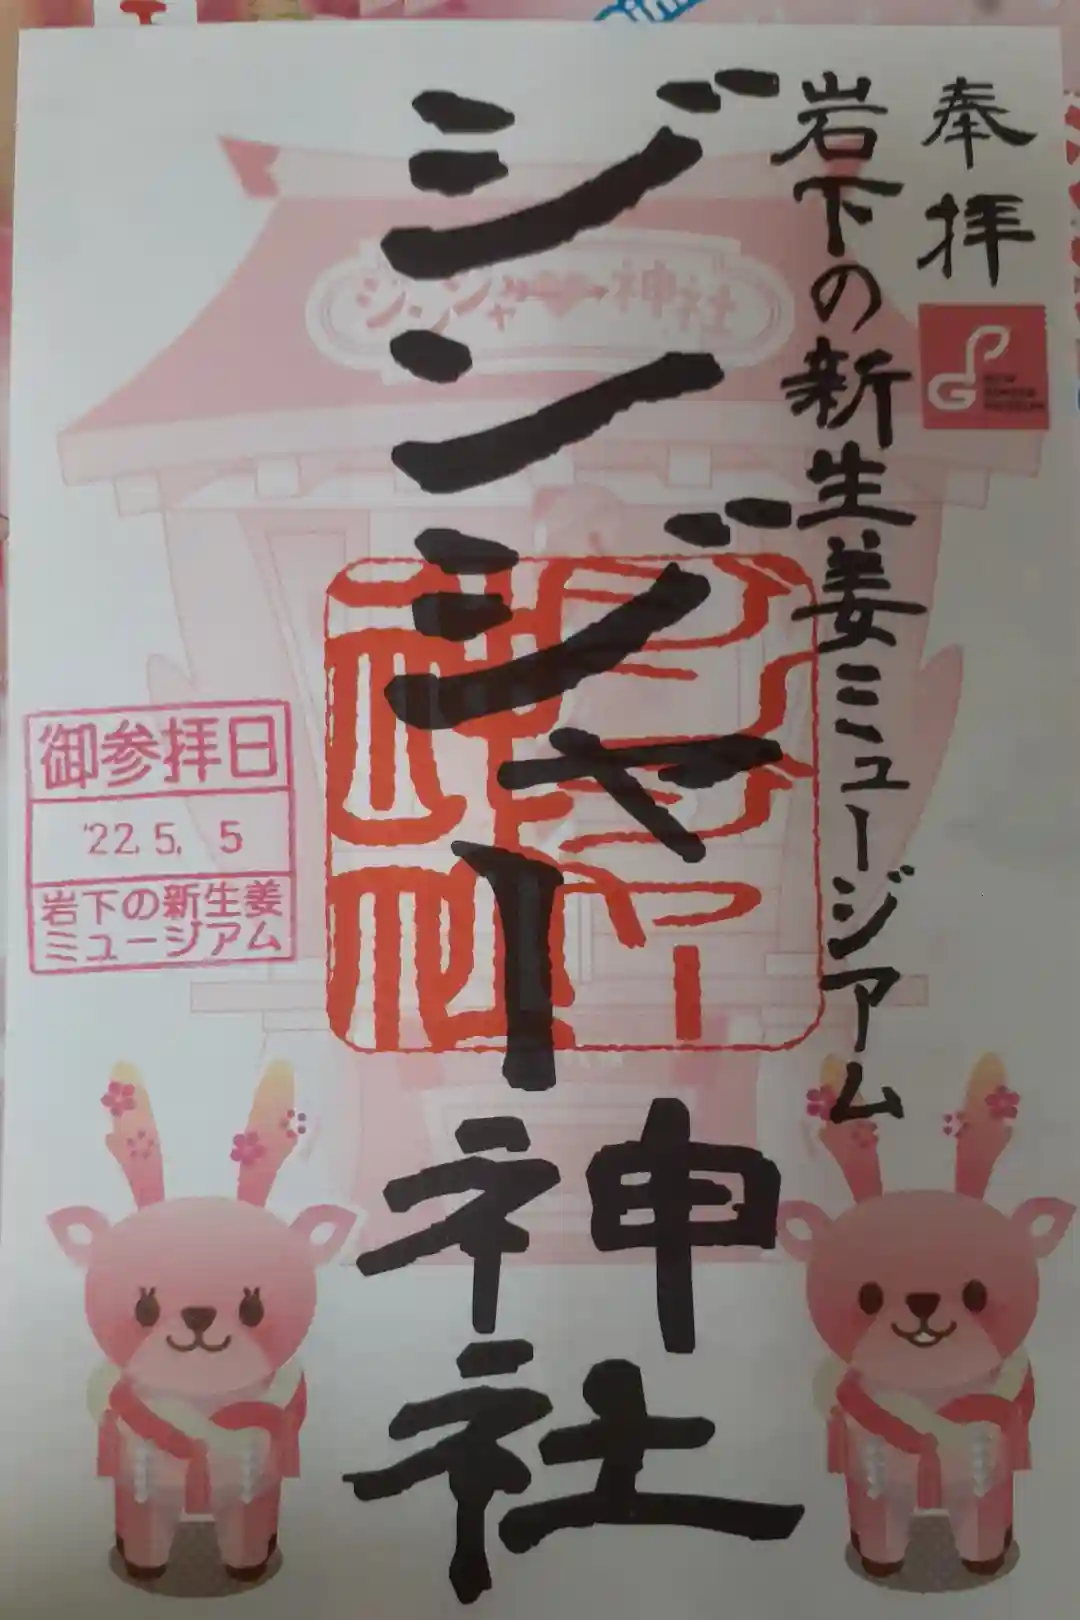 奉拝
岩下の新生姜ミュージアム
ジンジャー神社
ジンジャー神社
ジンジャー
神社
御参拝日
'22. 5. 5
岩下の新生姜
ミュージアム